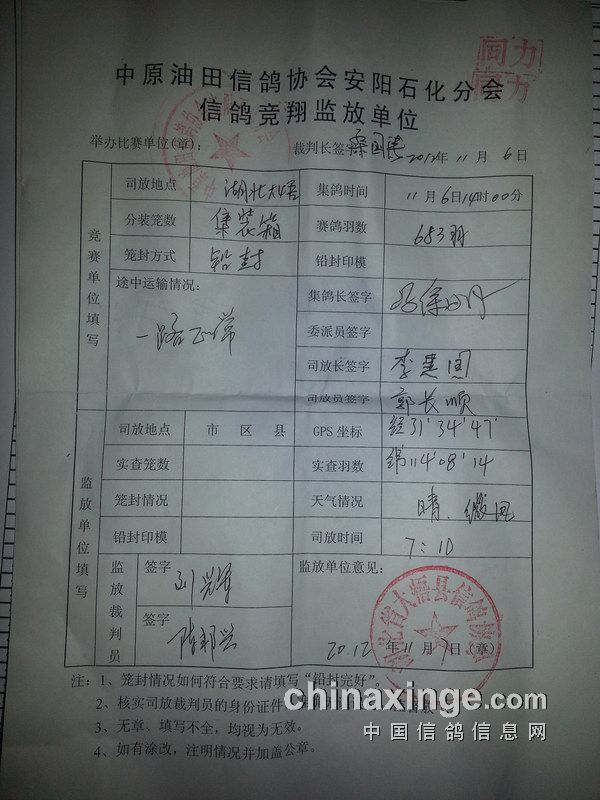 同力
同力
中原油田信鸽协会安阳石化分会
信鸽竞翔监放单位
举办比赛单位(章): 裁判长签字 2012年11月6日
竞赛单位填写
司放地点 湖北大悟 集鸽时间 11月6日14时00分
分装笼数 集装箱 赛鸽羽数 653羽
笼封方式 铅封 铅封印模
途中运输情况: 一路正常
集鸽长签字
委派员签字
司放长签字 李慧国
司放员签字 郭长顺
监放单位填写
司放地点 市 区 县 GPS坐标 经31'34'47'
纬114'08'14
实查笼数 实查羽数
笼封情况 天气情况 晴、微风
铅封印模 司放时间 7:10
监放裁判员
签字
签字
监放单位意见:
湖北省大悟县信鸽协会
2012年11月7日(章)
注: 1、笼封情况如何符合要求请填写“铅封完好”。
2、核实司放裁判员的身份证件
3、无章、填写不全,均视为无效。
4、如有涂改,注明情况并加盖公章。
chinaxinge.com
中国信鸽信息网